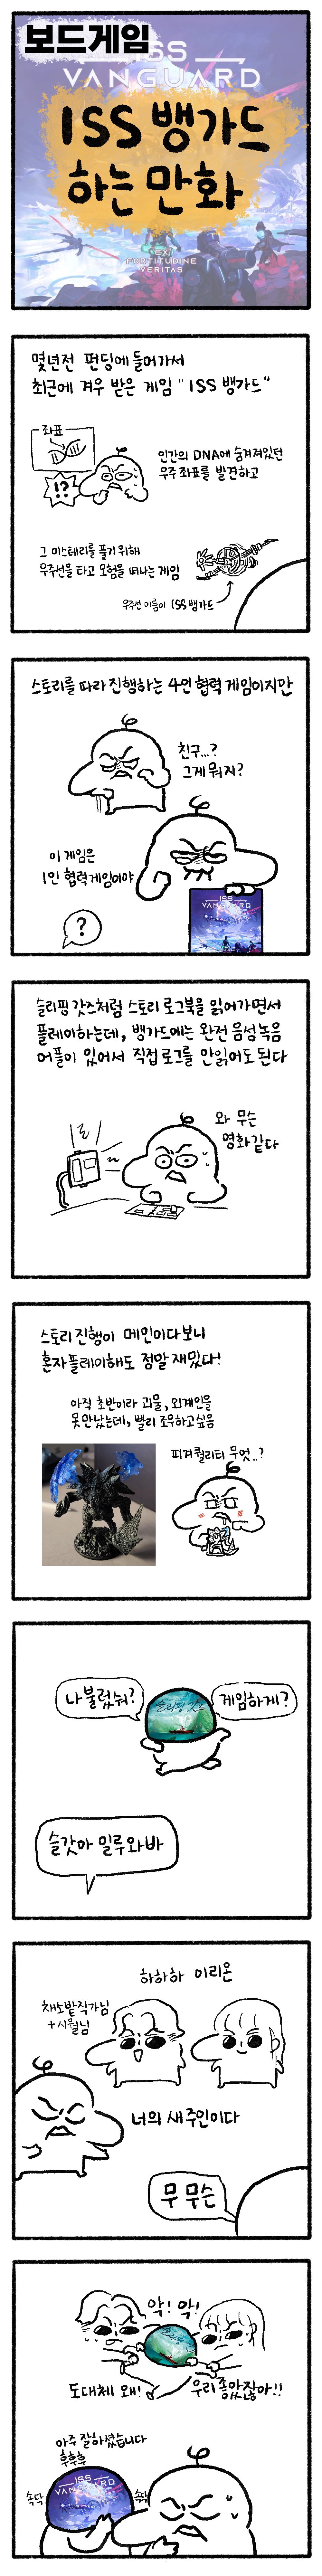 보드게임
ISS
VANGUARD
ISS 뱅가드
하는 만화
FORTITUDINE
VERITAS
몇년전 펀딩에 들어가서
최근에 겨우 받은 게임 "ISS 뱅가드"
좌표
!?
인간의 DNA에 숨겨져있던
우주 좌표를 발견하고
그 미스테리를 풀기 위해
우주선을 타고 모험을 떠나는 게임
우주선 이름이 ISS 뱅가드
스토리를 따라 진행하는 4인 협력 게임이지만
친구...?
그게 뭐지?
이 게임은
1인 협력게임이야
ISS
VANGUARD
?
슬리핑 갓즈처럼 스토리 로그북을 읽어가면서
플레이하는데, 뱅가드에는 완전 음성녹음
어플이 있어서 직접 로그를 안읽어도 된다
와 무슨
영화같다
스토리 진행이 메인이다보니
혼자플레이해도 정말 재밌다!
아직 초반이라 괴물, 외계인을
못만났는데, 빨리 조우하고싶음
피겨퀄리티 무엇..?
나불렀숴?
슬리핑 갓즈
게임하게?
슬갓아 일루와바
하하하 이리온
채소밭직가님
+시월님
너의 새주인이다
무 무슨
악! 악!
도대체 왜!
우리좋았잖아!!
아주 잘하셨습니다
후후후
ISS
VANGUARD
속닥
속닥